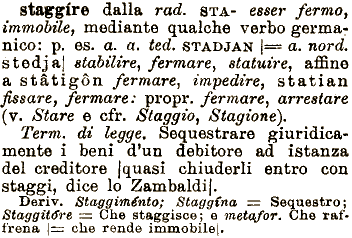 staggíre dalla rad. STA- esser fermo,
immobile, mediante qualche verbo germa-
nico: p. es. a. a. ted. STADJAN |= a. nord.
stedja| stabilire, fermare, statuire, affine
a stâtigôn fermare, impedire, statian
fissare, fermare: propr. fermare, arrestare
(v. Stare e cfr. Staggio, Stagione).
Term. di legge. Sequestrare giuridica-
mente i beni d'un debitore ad istanza
del creditore |quasi chiuderli entro con
staggi, dice lo Zambaldi|.
Deriv. Staggiménto; Staggína = Sequestro;
Staggitóre = Che staggisce; e metafor. Che raf-
frena |= che rende immobile|.